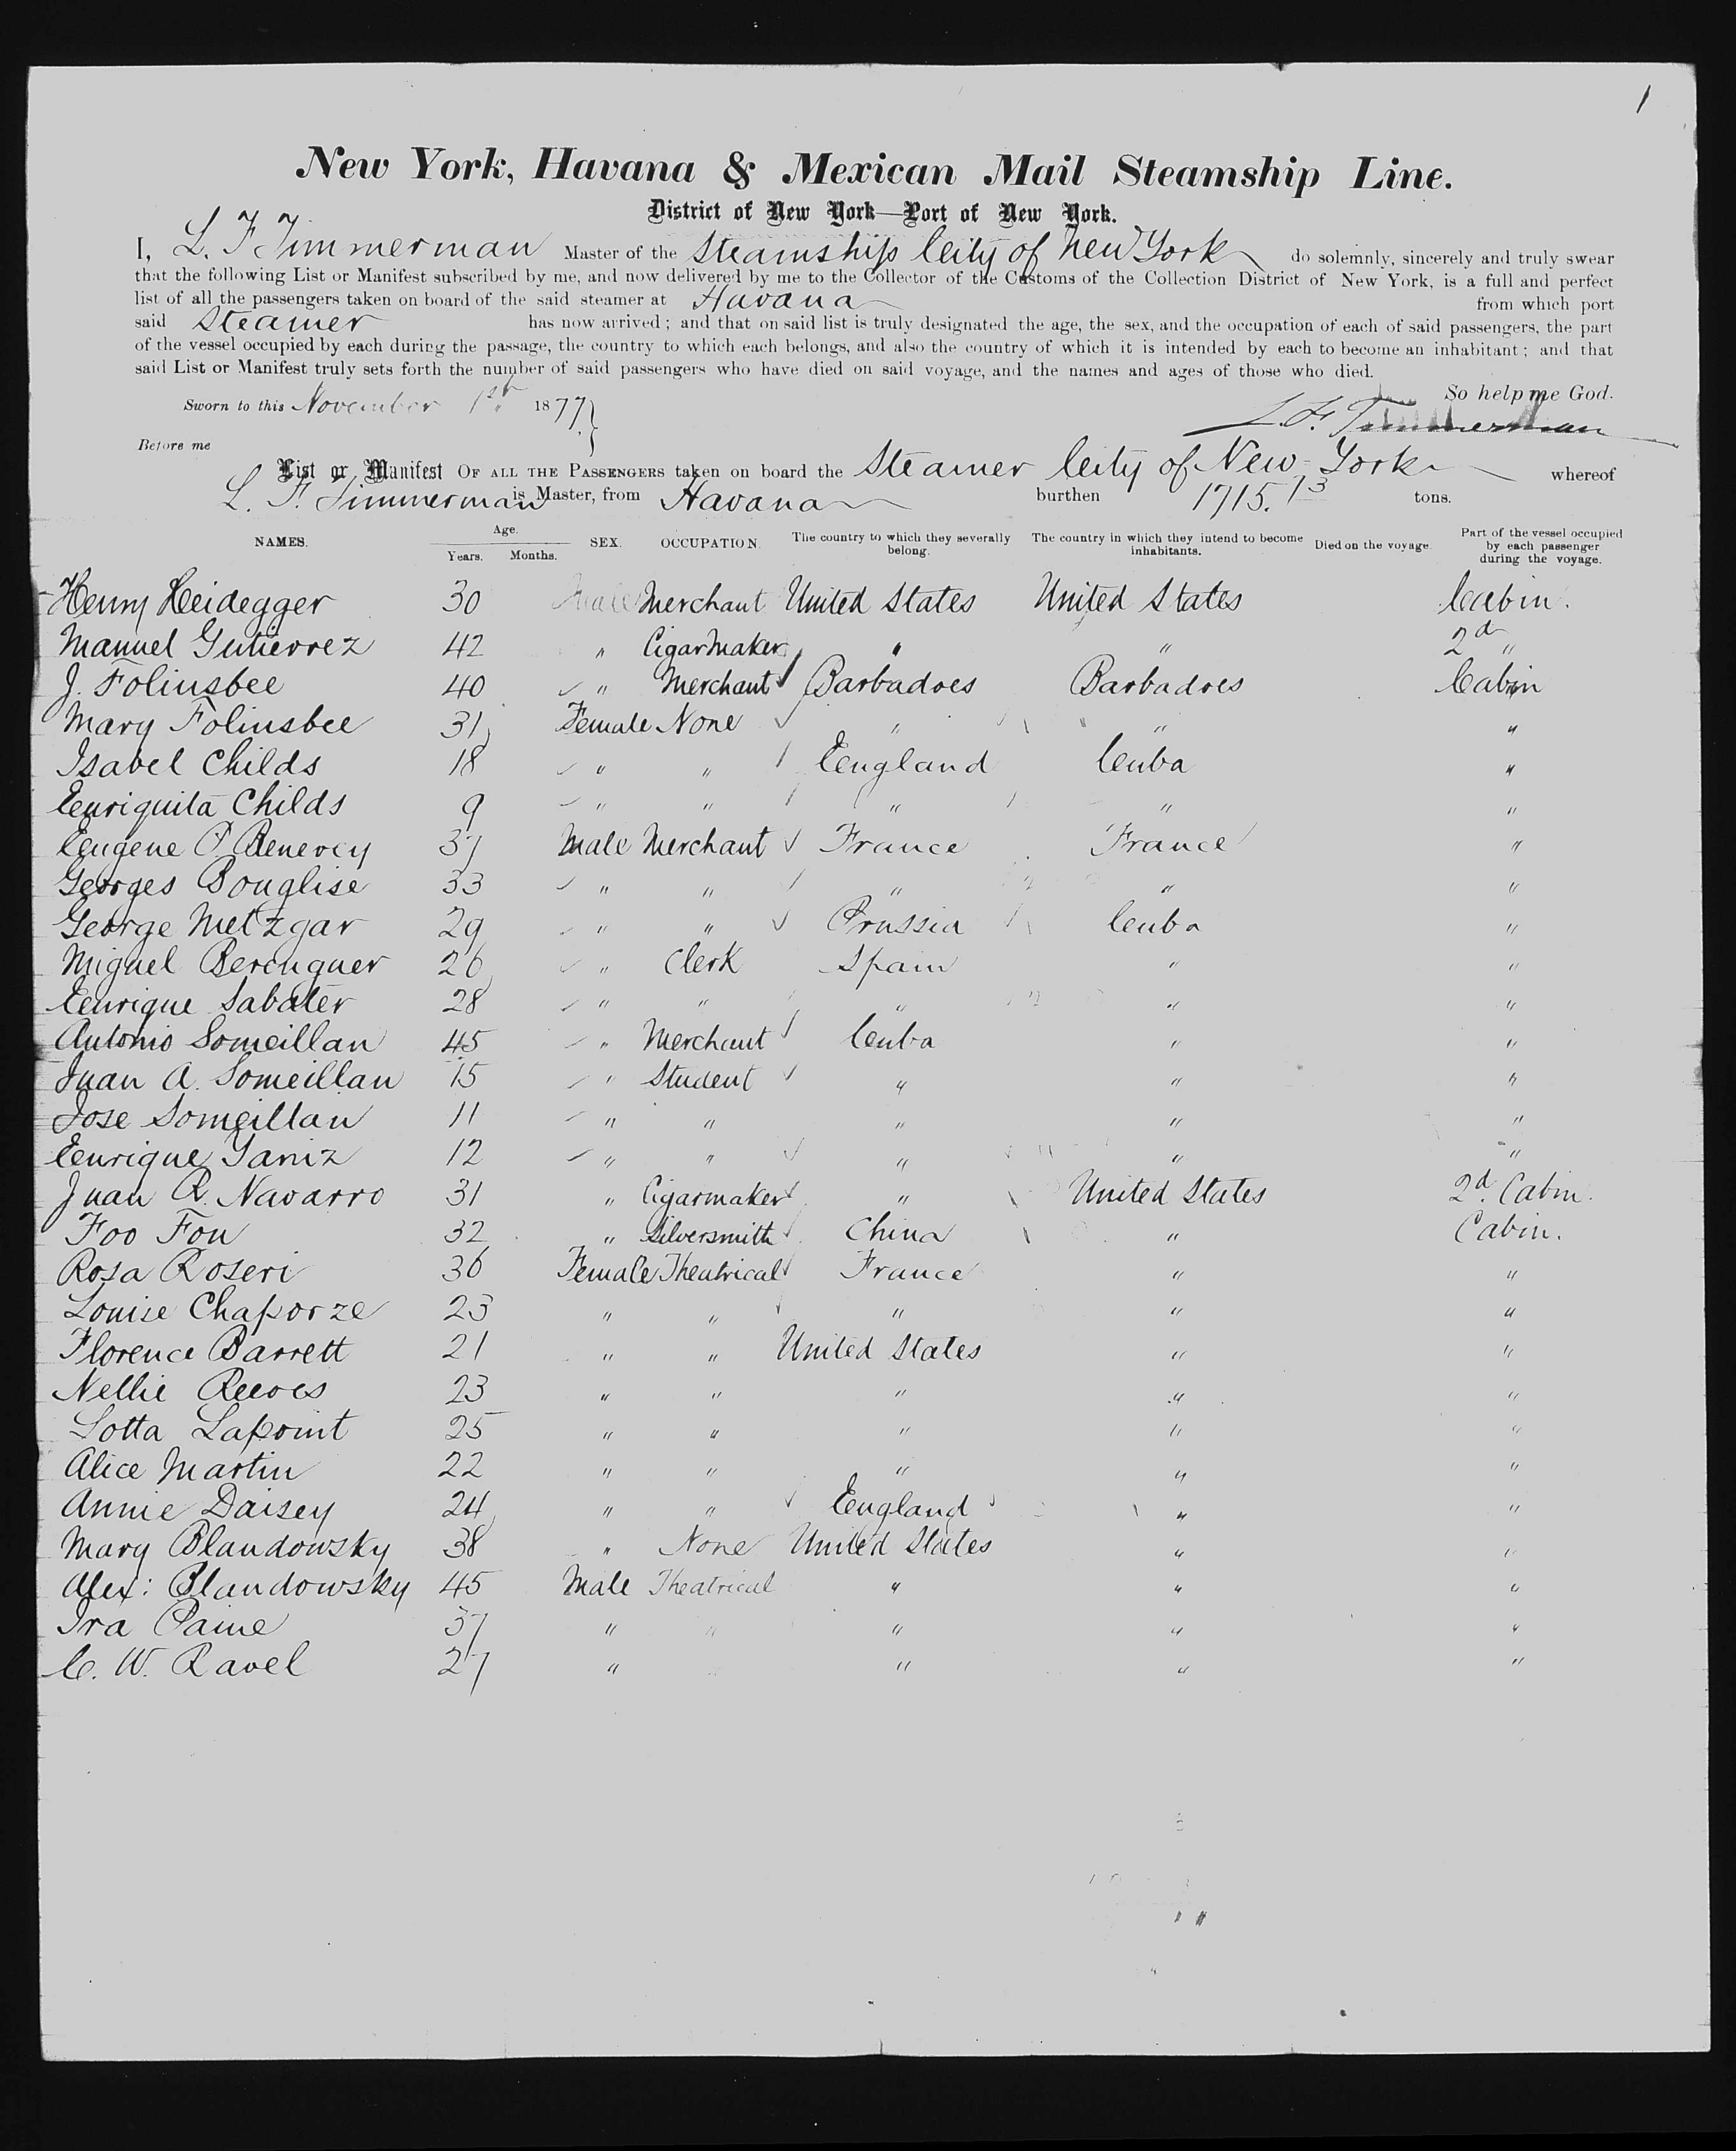 1
New York, Havana & Mexican Mail Steamship Line.
District of New York—Port of New York.
I, L. F Timmerman Master of the Steamship City of New York do solemnly, sincerely and truly swear
that the following List or Manifest subscribed by me, and now delivered by me to the Collector of the Customs of the Collection District of New York, is a full and perfect
list of all the passengers taken on board of the said steamer at Havana from which port
said Steamer has now arrived; and that on said list is truly designated the age, the sex, and the occupation of each of said passengers, the part
of the vessel occupied by each during the passage, the country to which each belongs, and also the country of which it is intended by each to become an inhabitant; and that
said List or Manifest truly sets forth the number of said passengers who have died on said voyage, and the names and ages of those who died.
So help me God.
Sworn to this November 1st 1877
L. F. Timmerman
Before me
List or Manifest OF ALL THE PASSENGERS taken on board the Steamer City of New York whereof
L. F. Timmerman is Master, from Havana burthen 1715.73 tons.
NAMES. Age. Years. Months. SEX. OCCUPATION. The country to which they severally belong. The country in which they intend to become inhabitants. Died on the voyage. Part of the vessel occupied by each passenger during the voyage.
Henry Heidegger 30 Male Merchant United States United States Cabin.
Manuel Gutierrez 42 " Cigarmaker " " 2d "
J. Folinsbee 40 " Merchant Barbadoes Barbadoes Cabin
Mary Folinsbee 31 Female None " " "
Isabel Childs 18 " " England Cuba "
Enriquita Childs 9 " " " " "
Eugene P. Benevey 37 Male Merchant France France "
Georges Bouglise 33 " " " " "
George Metzgar 29 " " Prussia Cuba "
Miguel Berenguer 26 " Clerk Spain " "
Enrique Sabater 28 " " " " "
Antonio Someillan 45 " Merchant Cuba " "
Juan A. Someillan 15 " Student " " "
Jose Someillan 11 " " " " "
Enrique Saniz 12 " " " " "
Juan R. Navarro 31 " Cigarmaker " United States 2d. Cabin.
Foo Fou 32 " Silversmith China " Cabin.
Rosa Roseri 36 Female Theatrical France " "
Louise Chaporze 23 " " " " "
Florence Barrett 21 " " United States " "
Nellie Reeves 23 " " " " "
Lotta Lapoint 25 " " " " "
Alice Martin 22 " " " " "
Annie Daisey 24 " " England " "
Mary Blandowsky 38 " None United States " "
Alex: Blandowsky 45 Male Theatrical " " "
Ira Paine 37 " " " " "
C. W. Ravel 27 " " " "